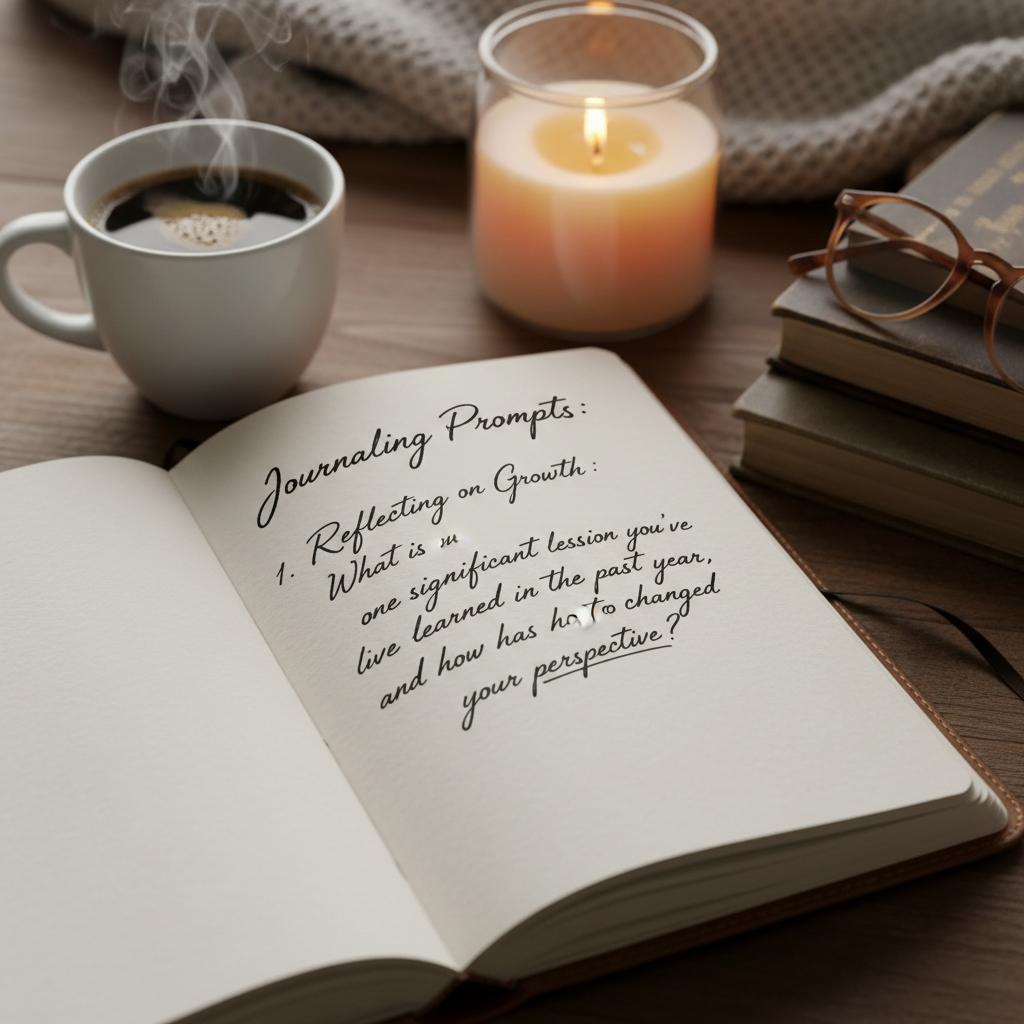 Journaling Prompts:
1. Reflecting on Growth:
What is
one significant lession you've
live learned in the past year,
and how has changed
your perspective?